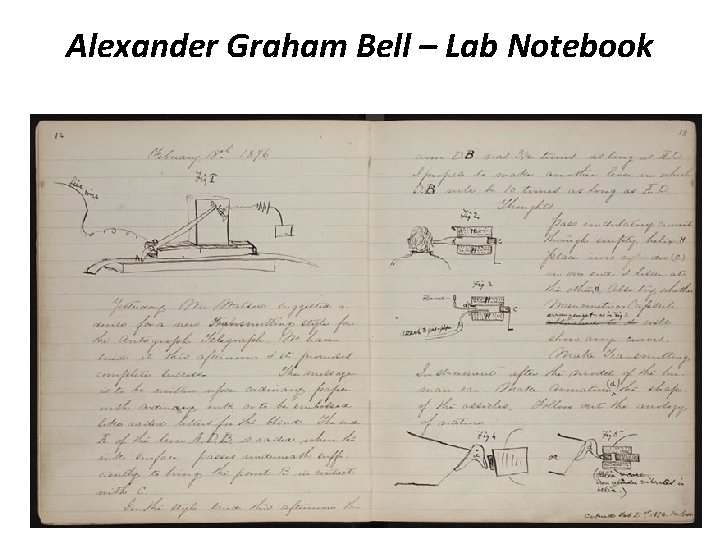 Alexander Graham Bell – Lab Notebook
12
February 18th 1876
Fig 1
fine wire
Yesterday Mr Watson suggested a
device for a new Transmitting style for
the Autograph Telegraph. We have
tried it this afternoon & it promises
complete success. The message
is to be written upon ordinary paper
with ordinary ink or to be embossed
like raised letters for the blind. The end
A of the lever A, D, B is raised when the
ink surface passes underneath suffi-
ciently to bring the point B in contact
with C.
In the style tried this afternoon the
13
arm DB was times as long as A.D.
I propose to make another lever in which
D.B will be 10 times as long as A.D.
Thoughts
Fig 2
pass undulating current
through empty helix H
place iron (C)
in one end & listen at
the other. Also try whether
Fig 3
Flame
Manometrical
attach to gas pipe
arrangement as in Fig 3
will
show any curves.
Make Transmitting
Instrument after the model of the hu-
man ear. Make armature (a) the shape
of the ossicles. Follow out the analogy
of nature.
Fig 4
or
Fig 5
iron cylinder vibrated in
helix.)
Feb 21st 1876